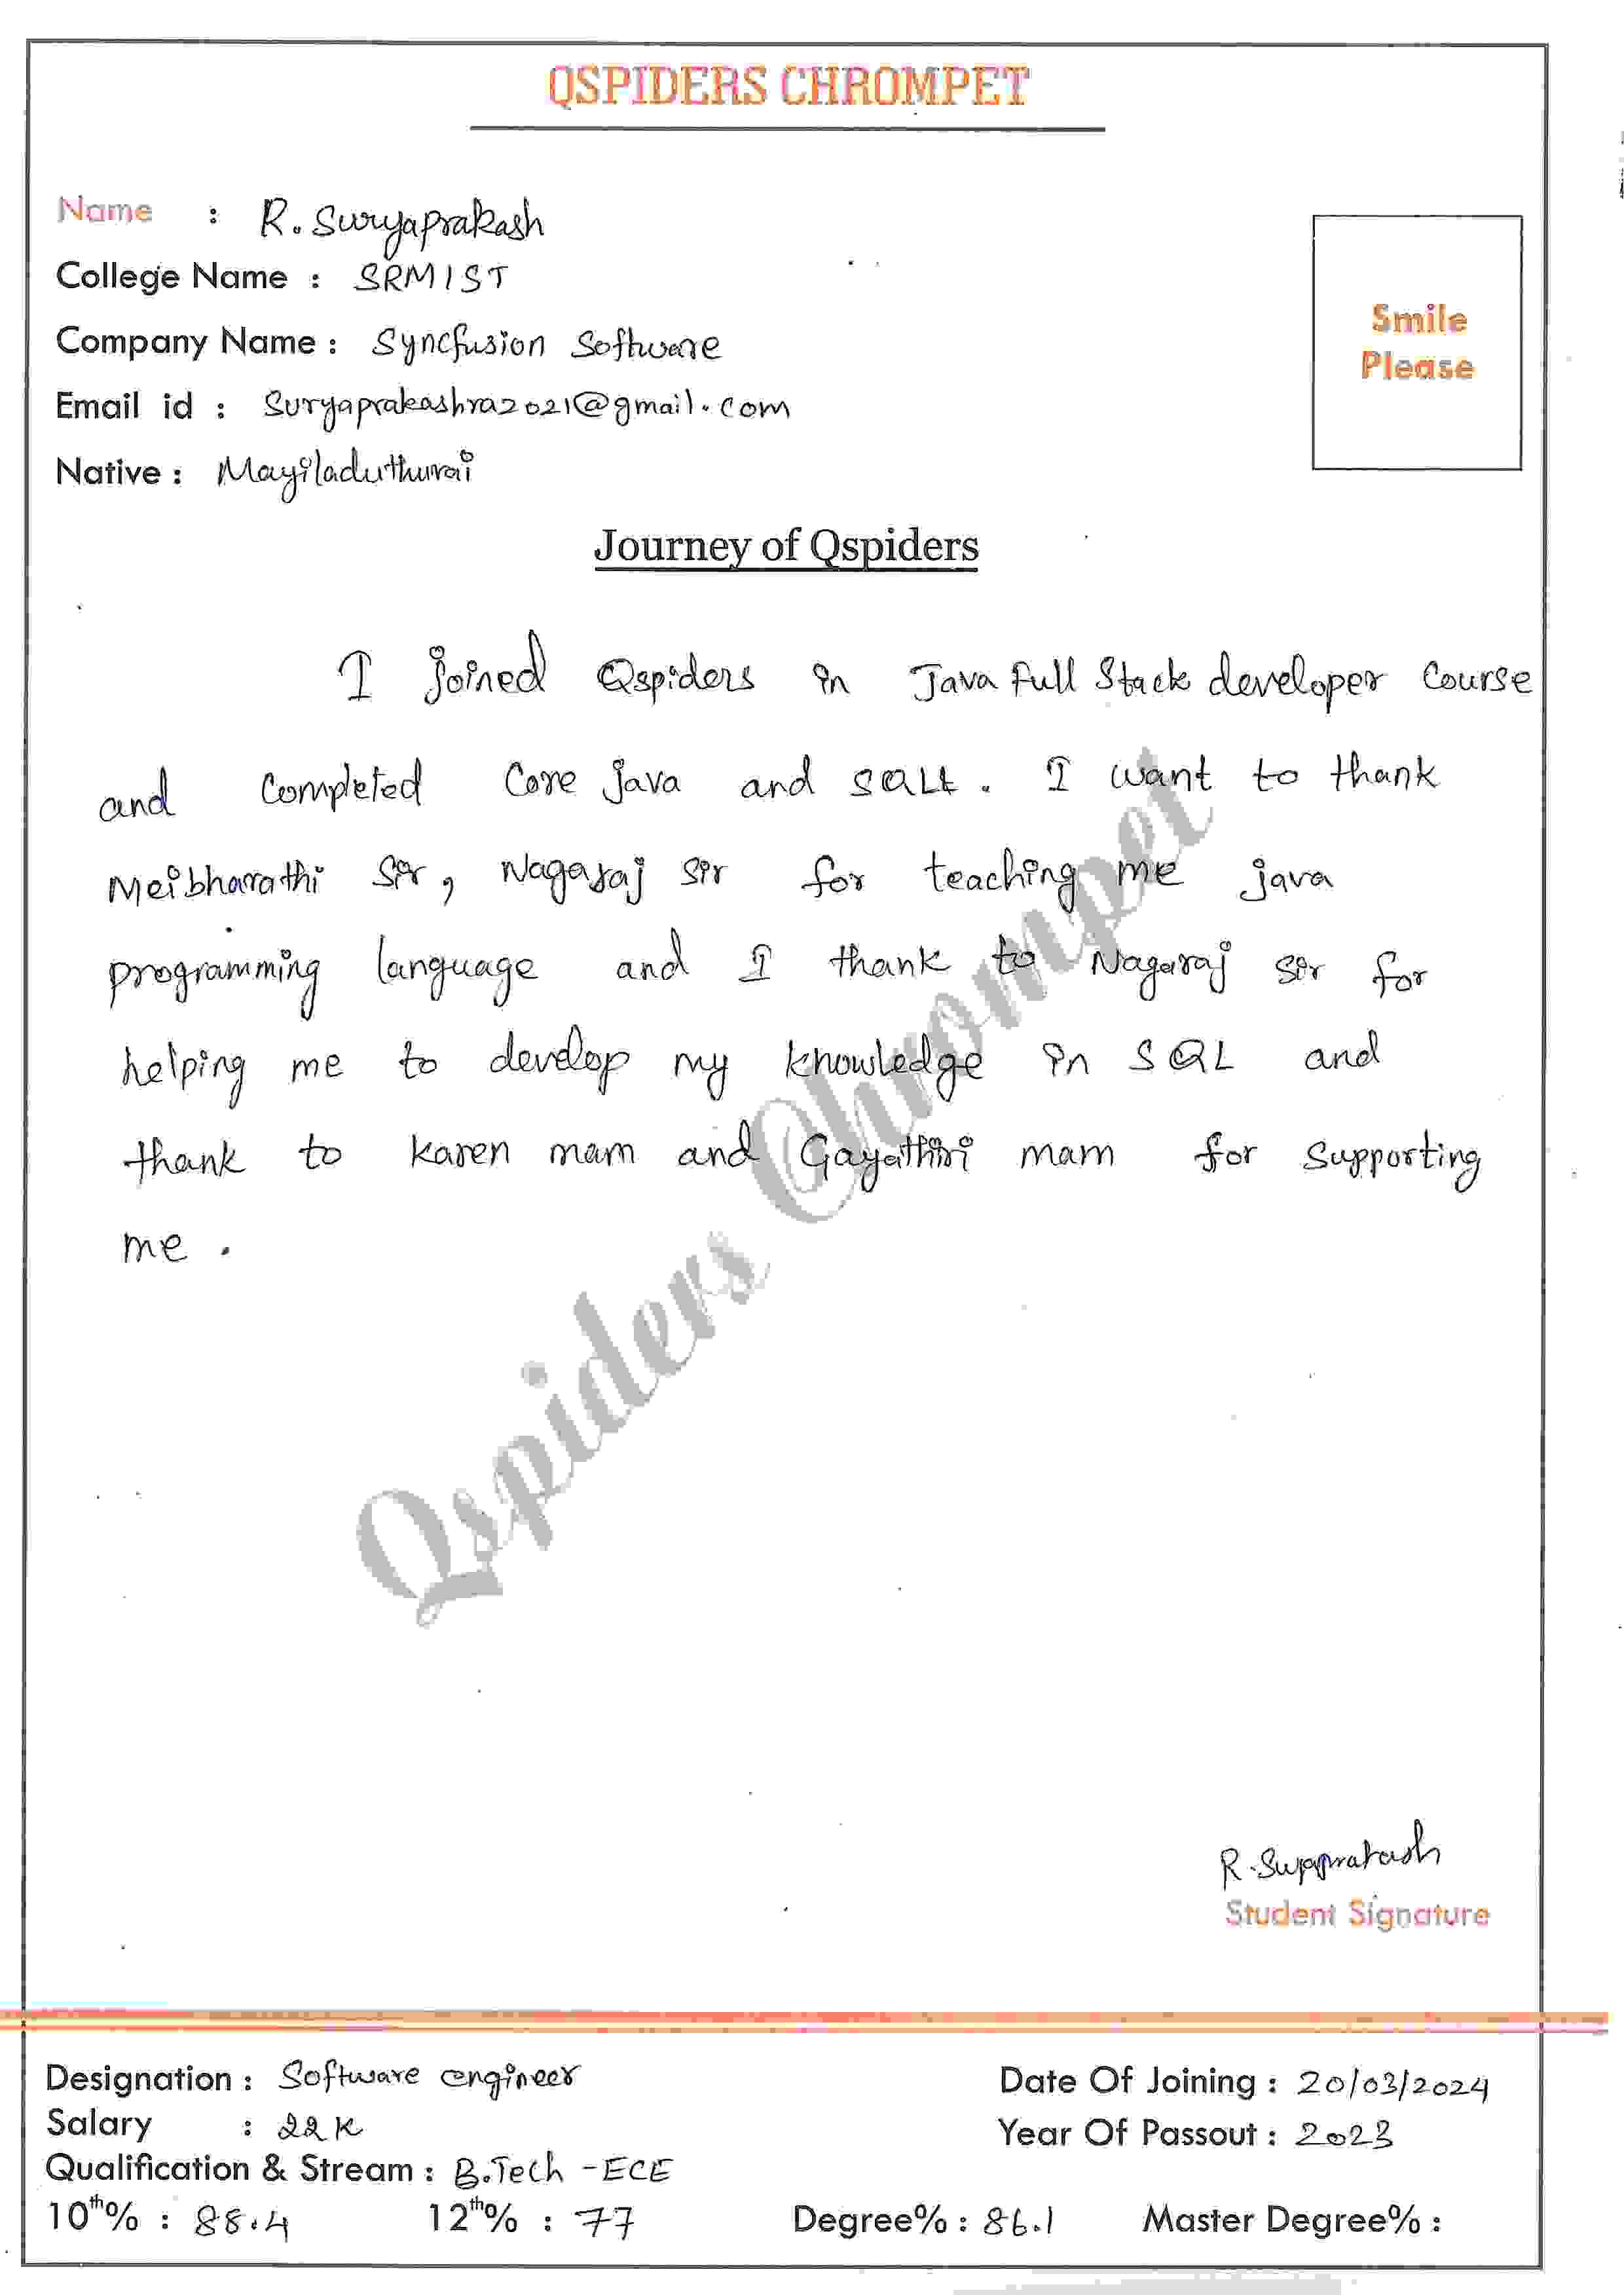 QSPIDERS CHROMPET
Name : R. Suryaprakash
College Name : SRMIST
Company Name : Syncfusion Software
Email id : Suryaprakashra2021@gmail.com
Native : Mayiladuthurai
Smile
Please
Journey of Qspiders
I joined Qspiders in Java Full Stack developer Course
and completed Core java and SQL. I want to thank
Meibharathi Sir, Nagaraj Sir for teaching me java
programming language and I thank to Nagaraj Sir for
helping me to develop my knowledge in SQL and
thank to Karen mam and Gayathiri mam for Supporting
me.
Qspiders Chrompet
R. Suryaprakash
Student Signature
Designation : Software engineer Date Of Joining : 20/03/2024
Salary : 22K Year Of Passout : 2023
Qualification & Stream : B.Tech - ECE
10th% : 88.4 12th% : 77 Degree% : 86.1 Master Degree% :